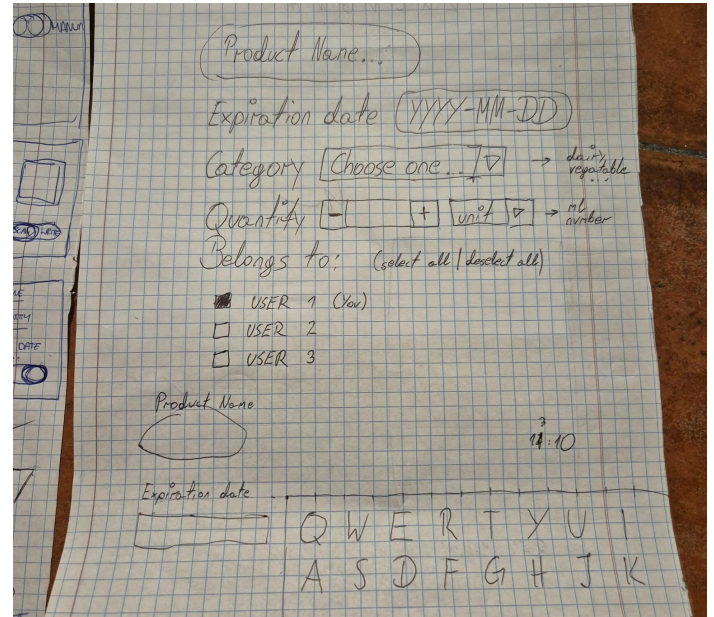 MANUAL
Product Name...
Expiration date YYYY-MM-DD
Category Choose one... → dairy,
vegetable
...
Quantity - + unit → ml
number
Belongs to: (select all | deselect all)
USER 1 (You)
USER 2
USER 3
DATE
Product Name
:10
Expiration date
Q W E R T Y U I
A S D F G H J K